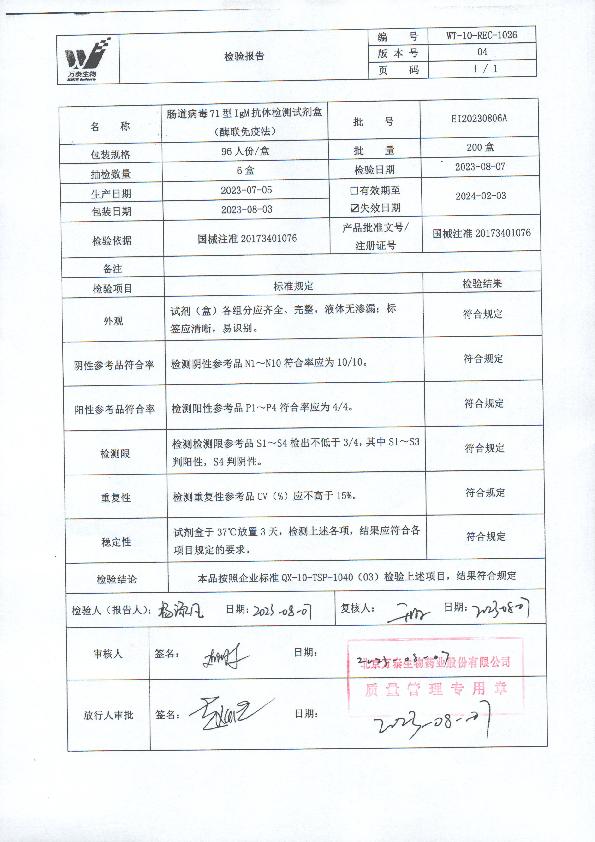 万泰生物
检验报告
编 号 WT-10-REC-1026
版 本 号 04
页 码 1 / 1
名 称 肠道病毒71型IgM抗体检测试剂盒
（酶联免疫法）
批 号 EI20230806A
包装规格 96人份/盒 批 量 200盒
抽检数量 6盒 检验日期 2023-08-07
生产日期 2023-07-05 □有效期至
包装日期 2023-08-03 ☑失效日期 2024-02-03
检验依据 国械注准20173401076 产品批准文号/
注册证号 国械注准20173401076
备注
检验项目 标准规定 检验结果
外观 试剂（盒）各组分应齐全、完整，液体无渗漏；标
签应清晰，易识别。 符合规定
阴性参考品符合率 检测阴性参考品N1～N10符合率应为10/10。 符合规定
阳性参考品符合率 检测阳性参考品P1～P4符合率应为4/4。 符合规定
检测限 检测检测限参考品S1～S4检出不低于3/4，其中S1～S3
判阳性，S4判阴性。 符合规定
重复性 检测重复性参考品CV（%）应不高于15%。 符合规定
稳定性 试剂盒于37℃放置3天，检测上述各项，结果应符合各
项目规定的要求。 符合规定
检验结论 本品按照企业标准QX-10-TSP-1040（03）检验上述项目，结果符合规定
检验人（报告人）： 日期：2023-08-07 复核人： 日期：2023-08-07
审核人 签名： 日期：2023-08-07
北京万泰生物药业股份有限公司
质量管理专用章
放行人审批 签名： 日期：2023-08-07